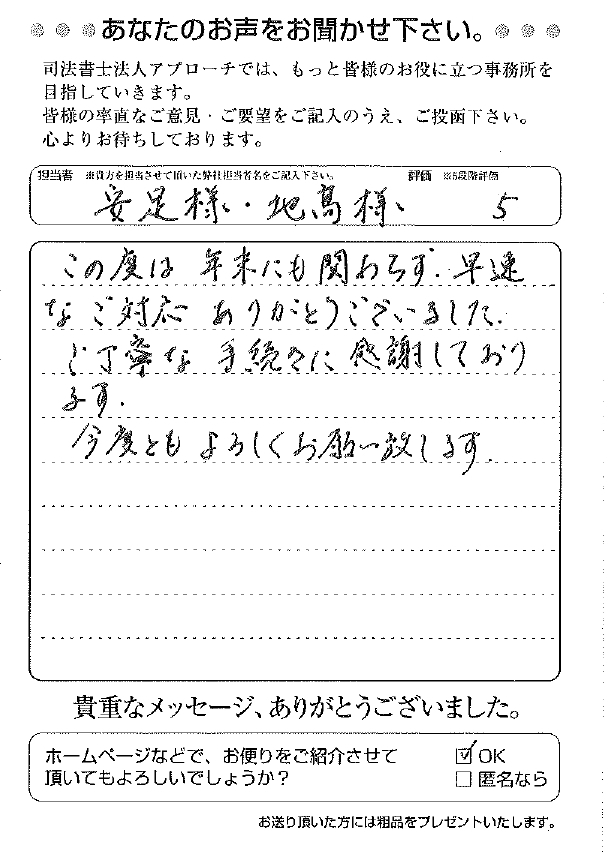 あなたのお声をお聞かせ下さい。
司法書士法人アプローチでは、もっと皆様のお役に立つ事務所を
目指していきます。
皆様の率直なご意見・ご要望をご記入のうえ、ご投函下さい。
心よりお待ちしております。
担当者 ※貴方を担当させて頂いた弊社担当者名をご記入下さい。 評価 ※5段階評価
安足様・地髙様 5
この度は 年末にも関わらず、早速
なご対応 ありがとうございました。
ご丁寧な 手続きに感謝しており
ます。
今度とも よろしくお願い致します。
貴重なメッセージ、ありがとうございました。
ホームページなどで、お便りをご紹介させて
頂いてもよろしいでしょうか？
☑ OK
□ 匿名なら
お送り頂いた方には粗品をプレゼントいたします。